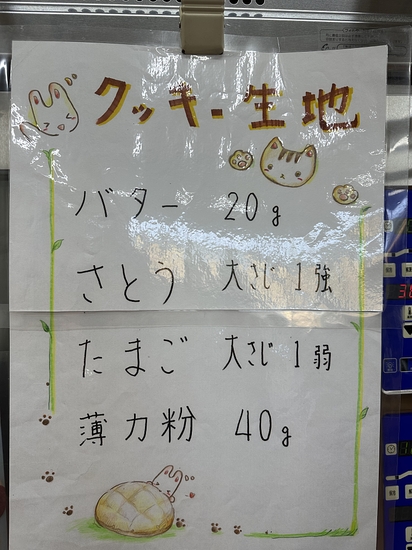 クッキー生地
バター 20g
さとう 大さじ1強
たまご 大さじ1弱
薄力粉 40g